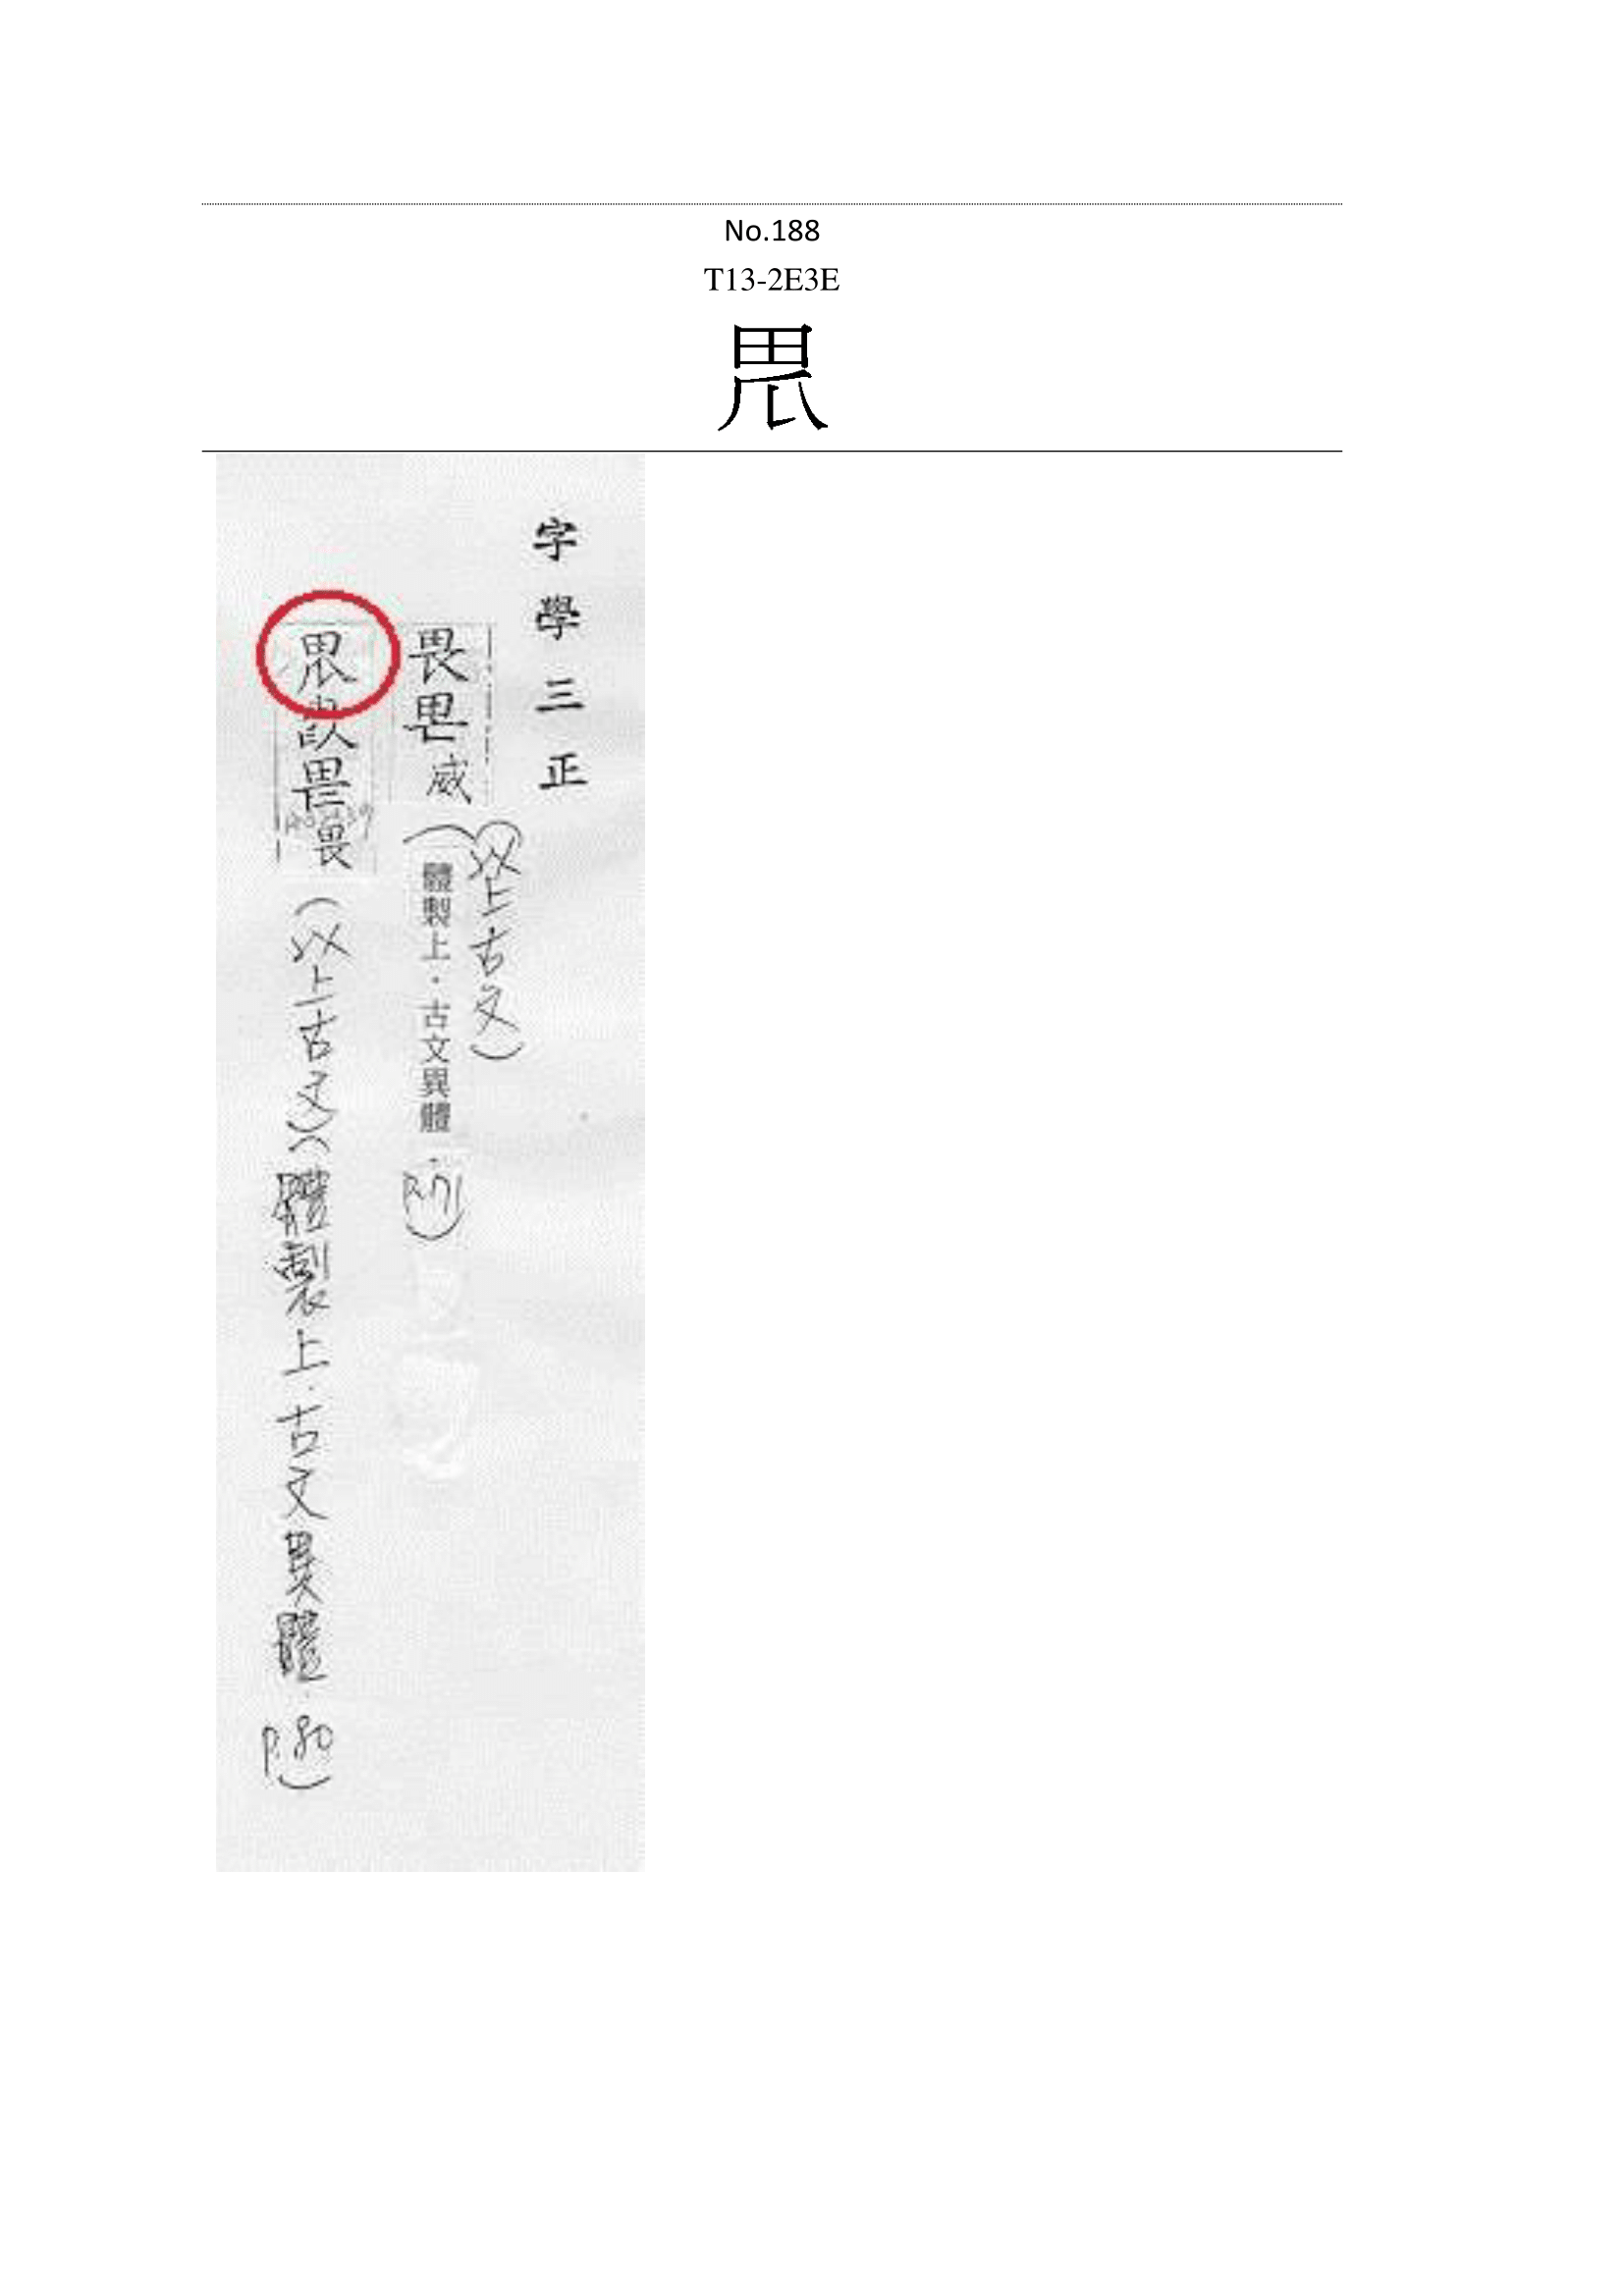 No.188
T13-2E3E
字學三正
(以上古文)
畏 威
(體製上·古文異體·P.71)
畏
(以上古文)(體製上·古文異體·P.80)